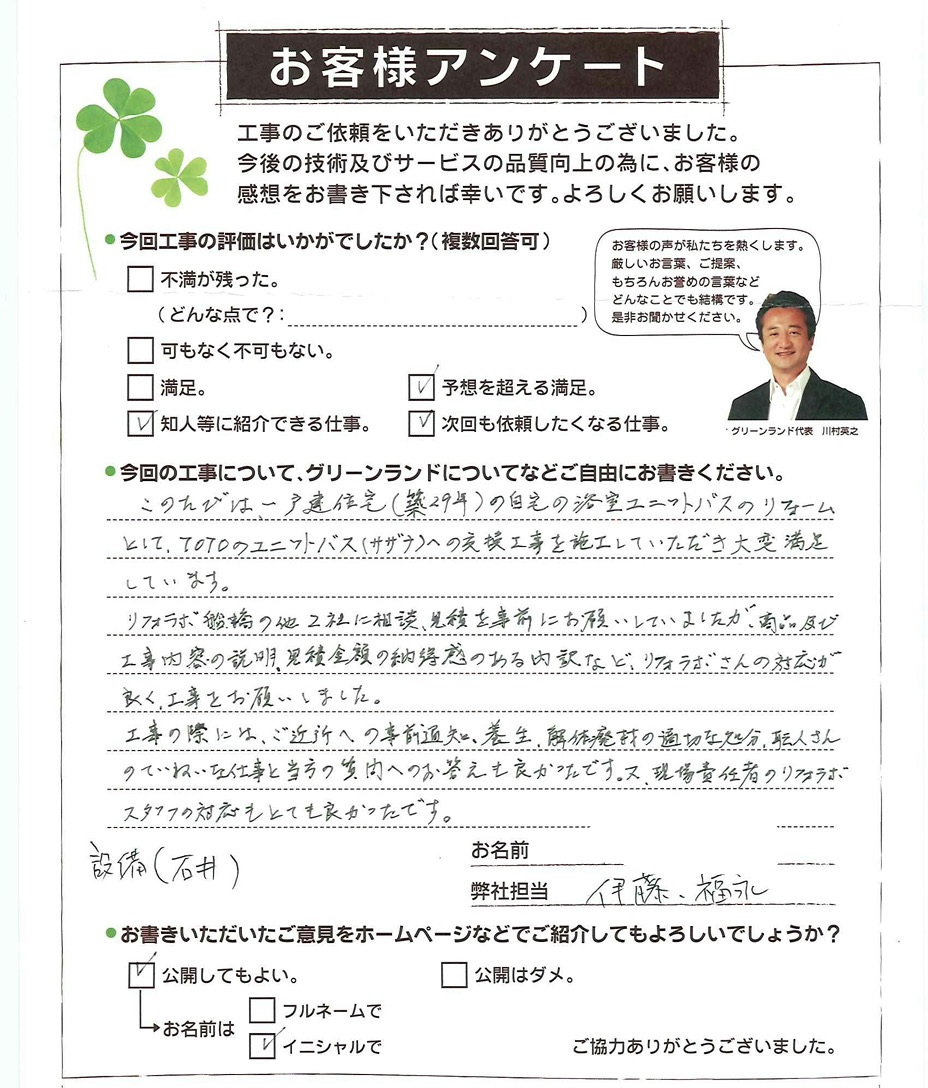 お客様アンケート
工事のご依頼をいただきありがとうございました。
今後の技術及びサービスの品質向上の為に、お客様の
感想をお書き下されば幸いです。よろしくお願いします。
今回工事の評価はいかがでしたか？（複数回答可）
不満が残った。
（どんな点で？：　）
可もなく不可もない。
満足。
予想を超える満足。
知人等に紹介できる仕事。
次回も依頼したくなる仕事。
お客様の声が私たちを熱くします。
厳しいお言葉、ご提案、
もちろんお誉めの言葉など
どんなことでも結構です。
是非お聞かせください。
グリーンランド代表　川村英之
今回の工事について、グリーンランドについてなどご自由にお書きください。
このたびは、一戸建住宅（築29年）の自宅の浴室ユニットバスのリフォーム
として、TOTOのユニットバス（サザナ）への交換工事を施工していただき大変満足
しています。
リフォラボ船橋の他2社に相談、見積を事前にお願いしていましたが、商品及び
工事内容の説明、見積金額の納得感のある内訳など、リフォラボさんの対応が
良く、工事をお願いしました。
工事の際には、ご近所への事前通知、養生、解体廃材の適切な処分、職人さん
のていねいな仕事と当方の質問へのお答えも良かったです。又、現場責任者のリフォラボ
スタッフの対応もとても良かったです。
設備（石井）
お名前
弊社担当　伊藤、福永
お書きいただいたご意見をホームページなどでご紹介してもよろしいでしょうか？
公開してもよい。
公開はダメ。
お名前は
フルネームで
イニシャルで
ご協力ありがとうございました。